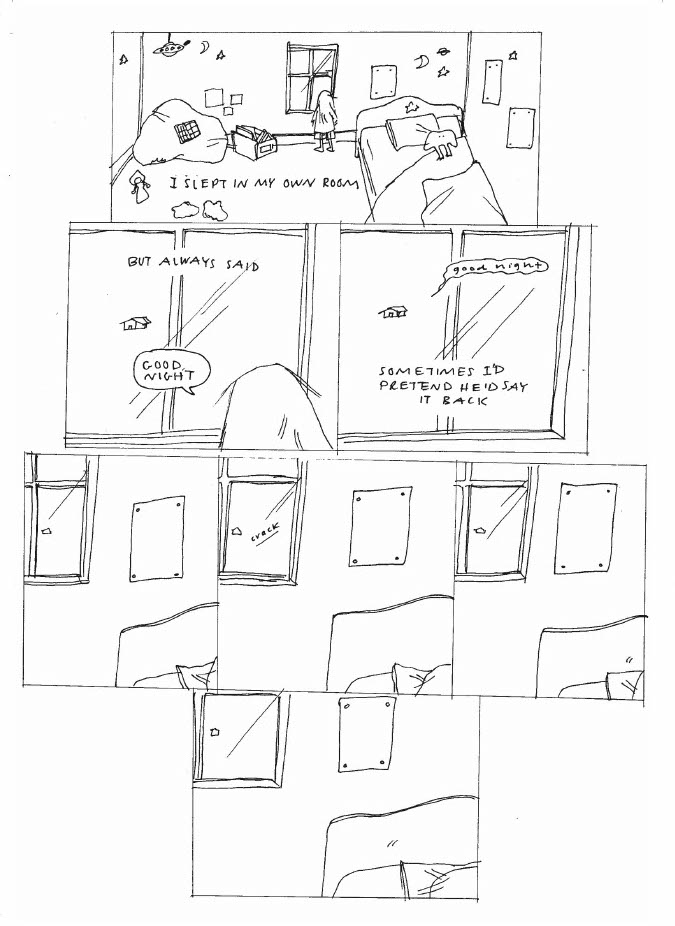 I SLEPT IN MY OWN ROOM
BUT ALWAYS SAID
GOOD
NIGHT
good night
SOMETIMES I'D
PRETEND HE'D SAY
IT BACK
crack